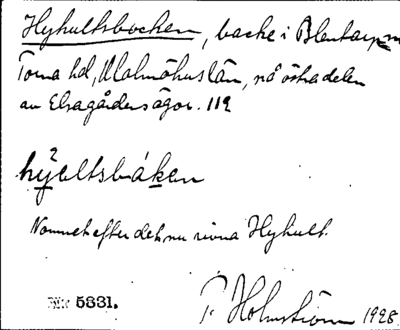 Hyhultsbacken, backe i Blentarp sn
Torna hd, Malmöhus län, på östra delen
av Elsagårdens ägor. 112
hý²eltsbáken
Namnet efter det nu rivna Hyhult.
5831.
P. Holmström 1928